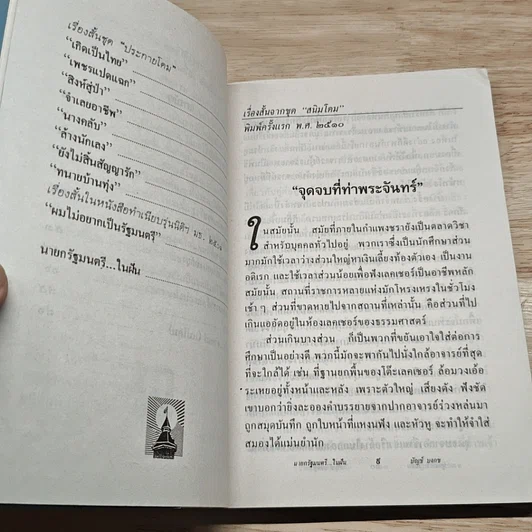 เรื่องสั้นชุด "ประกายโดม"
"เกิดเป็นไทย"
"เพชรแปดแฉก"
"สิงห์สู่ป่า"
"จำเลยอาชีพ"
"นางคลับ"
"ล้างนักเลง"
"ยังไม่สิ้นสัญญารัก"
"ทนายบ้านทุ่ง"
เรื่องสั้นในหนังสือทำเนียบรุ่นนิติฯ มธ.
"ผมไม่อยากเป็นรัฐมนตรี"
นายกรัฐมนตรี...ในฝัน
เรื่องสั้นจากชุด "สนิมโดม"
พิมพ์ครั้งแรก พ.ศ. ๒๕๑๐
"จุดจบที่ท่าพระจันทร์"
ในสมัยนั้น สมัยที่ภายในกำแพงชรายังเป็นตลาดวิชา
สำหรับบุคคลทั่วไปอยู่ พวกเราซึ่งเป็นนักศึกษาส่วน
มากมักใช้เวลาว่างส่วนใหญ่หาเงินเลี้ยงท้องตัวเอง เป็นงาน
อดิเรก และใช้เวลาส่วนน้อยเพื่อฟังเลคเชอร์เป็นอาชีพหลัก
สมัยนั้น สถานที่ราชการหลายแห่งมักโหรงเหรงในชั่วโมง
เช้า ๆ ส่วนที่ขาดหายไปจากสถานที่เหล่านั้น คือส่วนที่ไป
เกินแออัดอยู่ในห้องเลคเชอร์ของธรรมศาสตร์
ส่วนเกินบางส่วน ก็เป็นพวกที่ขยันเอาใจใส่ต่อการ
ศึกษาเป็นอย่างดี พวกนี้มักจะพากันไปนั่งใกล้อาจารย์ที่สุด
ที่จะใกล้ได้ เช่น ที่ฐานยกพื้นของโต๊ะเลคเชอร์ ล้อมวงเอ้อ
ระเหยอยู่ทั้งหน้าและหลัง เพราะตัวใหญ่ เสียงดัง ฟังชัด
เขาบอกว่ายิ่งละอองคำบรรยายจากปากอาจารย์ร่วงหล่นมา
ถูกสมุดบันทึก ถูกใบหน้าที่แหงนฟัง และหัวหู จะทำให้จำใส่
สมองได้แม่นยำนัก
นายกรัฐมนตรี...ในฝัน ๕ บัญช์ บงกช